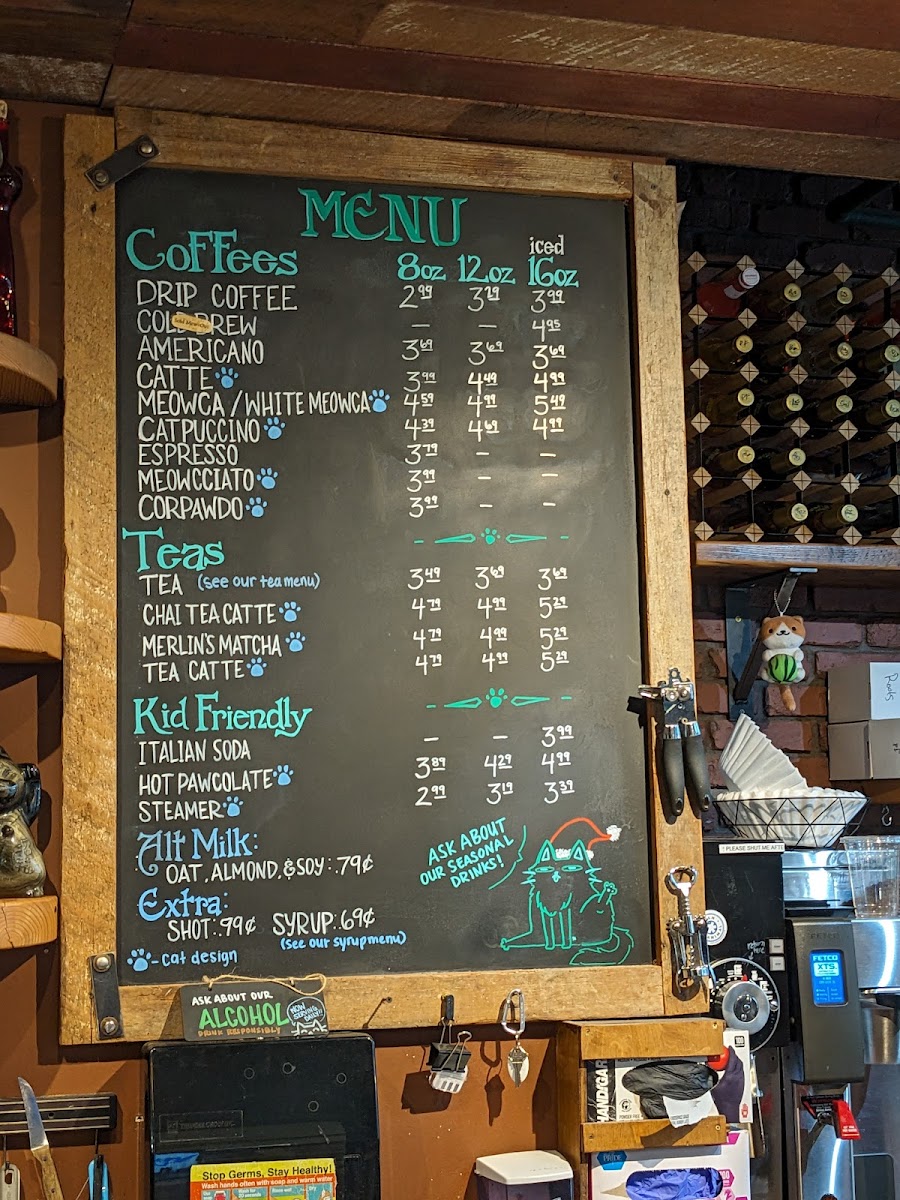 MENU
Coffees 8oz 12oz iced 16oz
DRIP COFFEE 2.99 3.29 3.99
COLD BREW — — 4.95
AMERICANO 3.69 3.69 3.69
CATTE 3.99 4.49 4.99
MEOWCA / WHITE MEOWCA 4.59 4.99 5.49
CATPUCCINO 4.39 4.69 4.99
ESPRESSO 3.79 – –
MEOWCCIATO 3.99 – –
CORPAWDO 3.99 – –
Teas
TEA (see our tea menu) 3.49 3.69 3.69
CHAI TEA CATTE 4.79 4.99 5.29
MERLIN'S MATCHA 4.79 4.99 5.29
TEA CATTE 4.79 4.99 5.29
Kid Friendly
ITALIAN SODA – – 3.99
HOT PAWCOLATE 3.89 4.29 4.99
STEAMER 2.99 3.19 3.39
Alt Milk:
OAT, ALMOND, & SOY: .79¢
Extra:
SHOT: .99¢ SYRUP: .69¢
(see our syrup menu)
- cat design
ASK ABOUT
OUR SEASONAL
DRINKS!
ASK ABOUT OUR
ALCOHOL
DRINK RESPONSIBLY
NOW
SERVING
DAILY!!
Stop Germs, Stay Healthy!
Wash hands often with soap and warm water
! PLEASE SHUT ME
return
here
FETCO
FETCO
XTS
HANDGAR
PRIDE